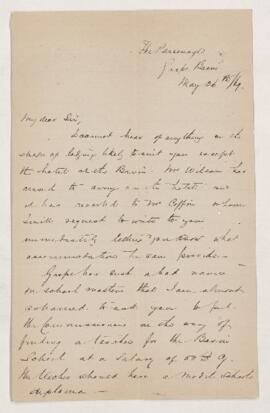 The Parsonage
Gaspé Basin
May 26th/69.
My dear Sir,
I cannot hear of anything in the
shape of lodging likely to suit you except
the hotel at the Basin. Mr Wilson has
ceased to carry on the hotel, and
it has reverted to Mr Coffin whom
I will request to write to you
immediately letting you know what
accommodation he can provide.
Gaspé has such a bad name
in school matters that I am almost
ashamed to ask you to put
the Commissioners in the way of
finding a teacher for the Basin
School at a salary of
the teacher should have a Model School
diploma —